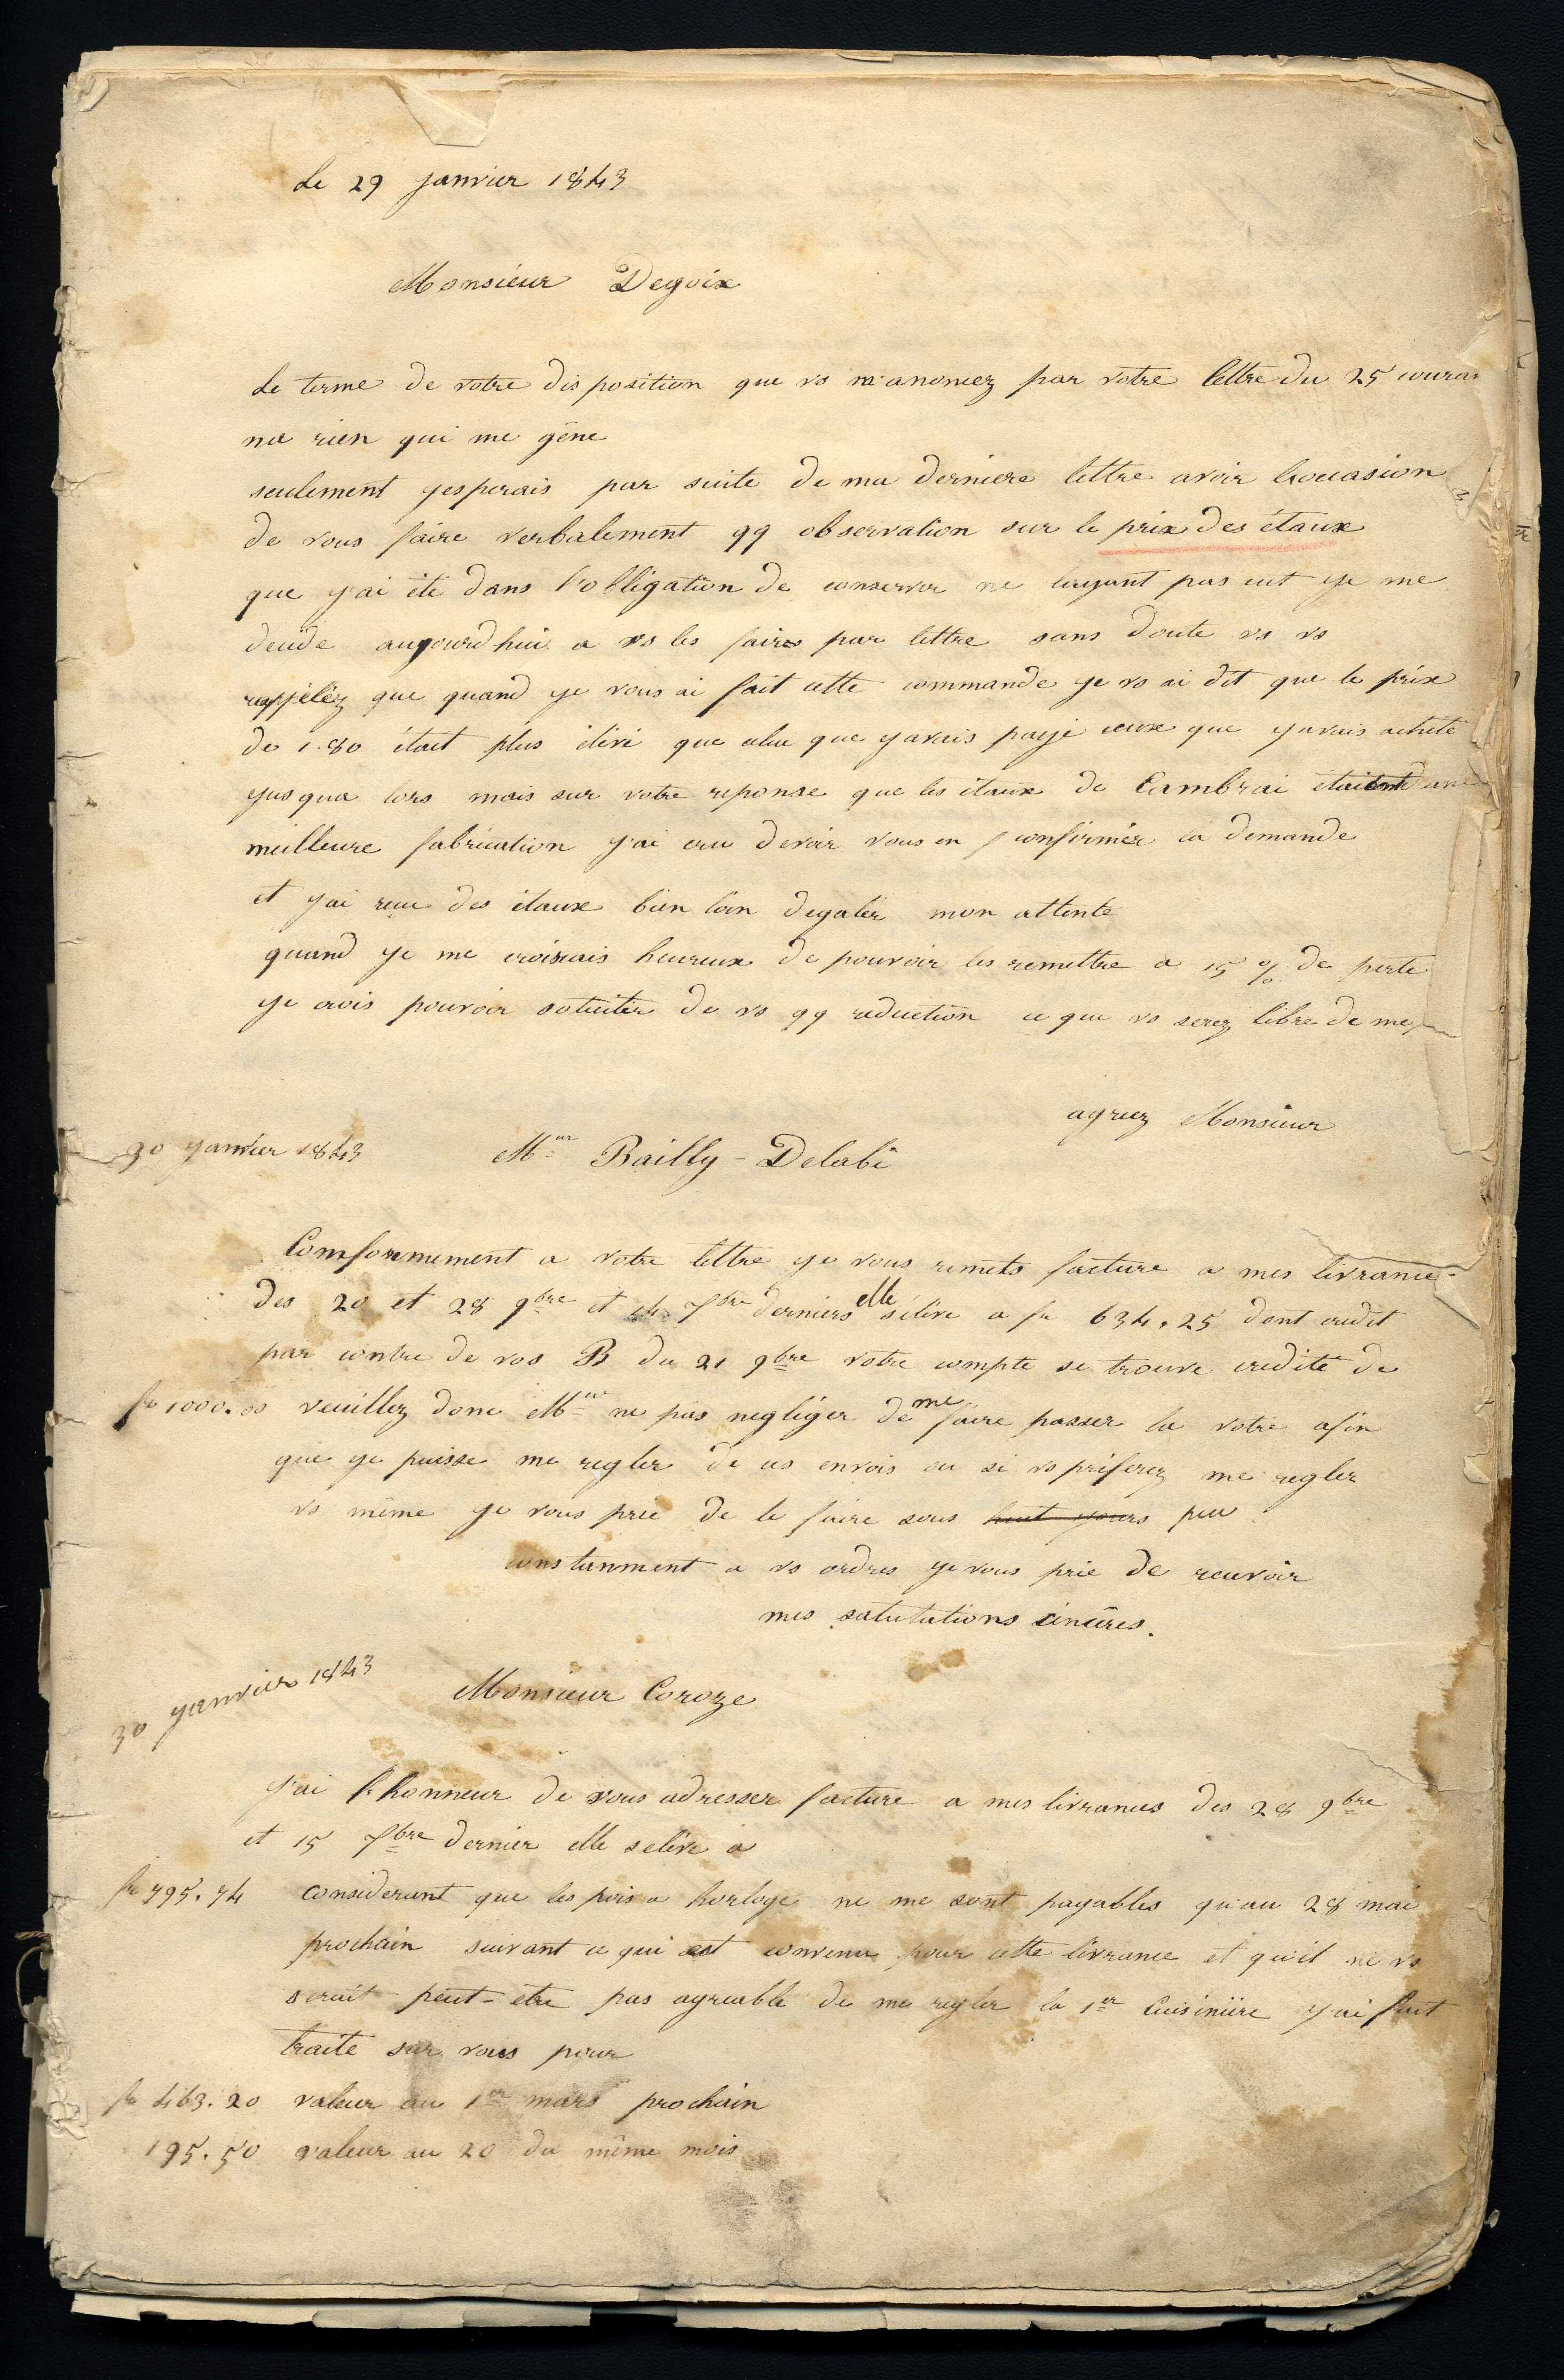 Le 29 Janvier 1843
Monsieur Degoix
Le terme de votre disposition que vs m'anoncez par votre lettre du 25 couran
na rien qui me gêne
seulement jesperais par suite de ma derniere lettre avoir l'occasion
de vous faire verbalement qq observation sur le prix des étaux
que j'ai été dans l'obligation de conserver ne layant pas eut je me
decide aujourd'hui a vs les faires par lettre sans doute vs vs
rappelez que quand je vous ai fait cette commande je vs ai dit que le prix
de 1.80 était plus élévé que celui que javais payé ceux que javais acheté
jusqua lors mais sur votre reponse que les étaux de Cambrai etaient dune
meilleure fabrication j'ai cru devoir vous en confirmer la demande
et j'ai recu des étaux bien loin degaler mon attente
quand je me croisiais heureux de pouvoir les remettre a 15 % de perte
je crois pouvoir soliciter de vs qq reduction ce que vs serez libre de me
agreez Monsieur
30 janvier 1843 Mr Bailly - Delabi
Comformement a votre lettre je vous remets facture a mes livrances
des 20 et 28 9bre et 7bre derniers elle s'élève a fr 634.25 dont credit
par contre de vos B du 21 9bre votre compte se trouve credité de
fr 1000.00 veuillez donc Mr ne pas negliger de me faire passer la votre afin
que je puisse me regler de ces envois ou si vs préferez me regler
vs même je vous prie de le faire sous huit jours peu
constanment a vs ordres je vous prie de recevoir
mes salutations cincères.
30 janvier 1843 Monsieur Coroze
J'ai l'honneur de vous adresser facture a mes livrances des 28 9bre
et 15 7bre dernier elle seléve a
fr 795.74 considerant que les pois a horloge ne me sont payables qu'au 28 mai
prochain suivant ce qui est convenu pour cette livrance et qu'il ne vs
serait peut-etre pas agreable de me regler la 1er Cuisinière j'ai fait
traite sur vous pour
fr 463.20 valeur au 1er mars prochain
195.50 valeur au 20 du même mois